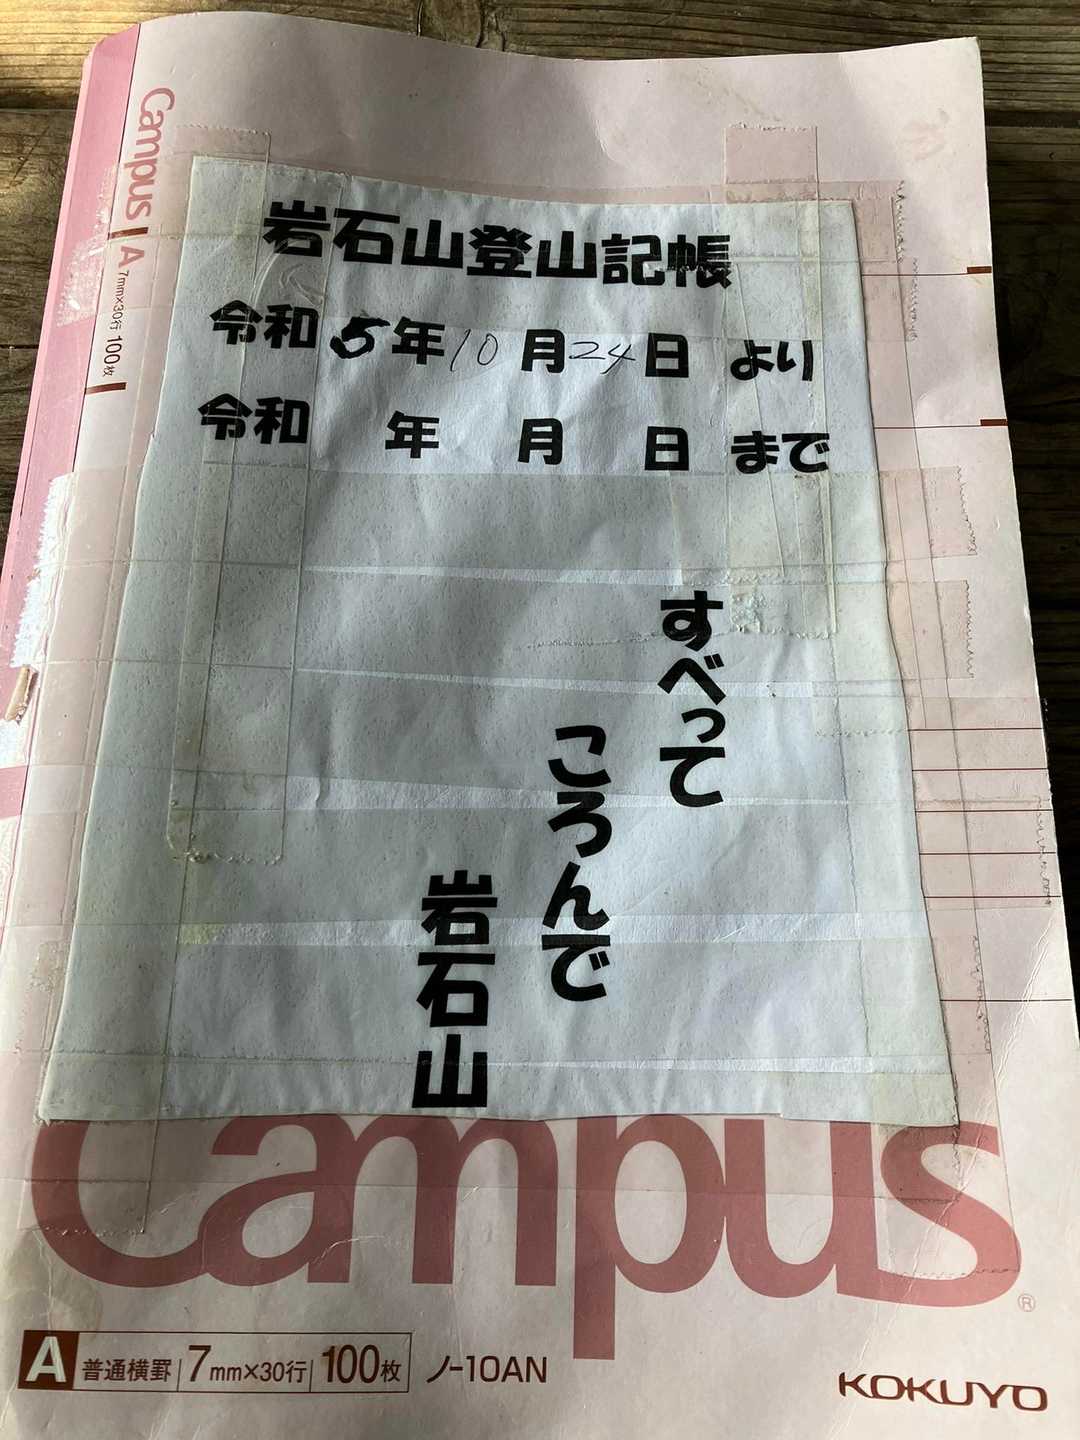 Campus A 7mm×30行 100枚
岩石山登山記帳
令和5年10月24日より
令和 年 月 日まで
すべって
ころんで
岩石山
Campus
®
A 普通横罫 7mm×30行 100枚 ノ-10AN
KOKUYO